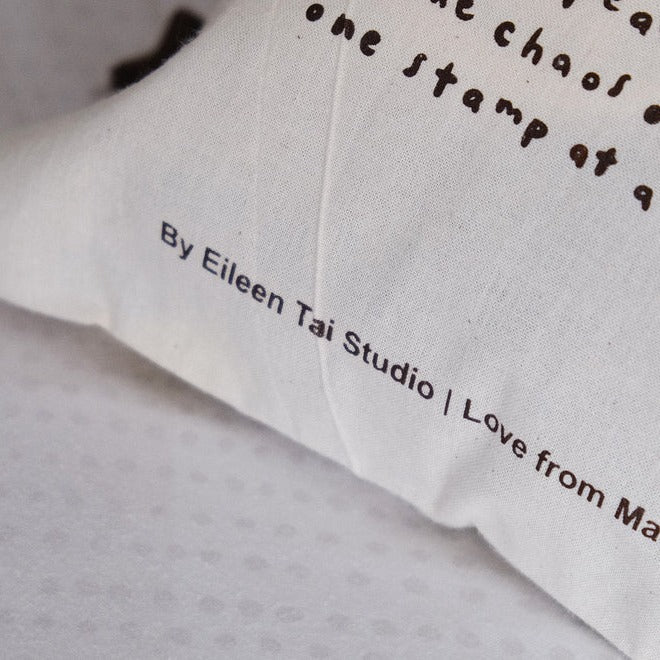 chaos
one stamp at a
By Eileen Tai Studio | Love from Ma